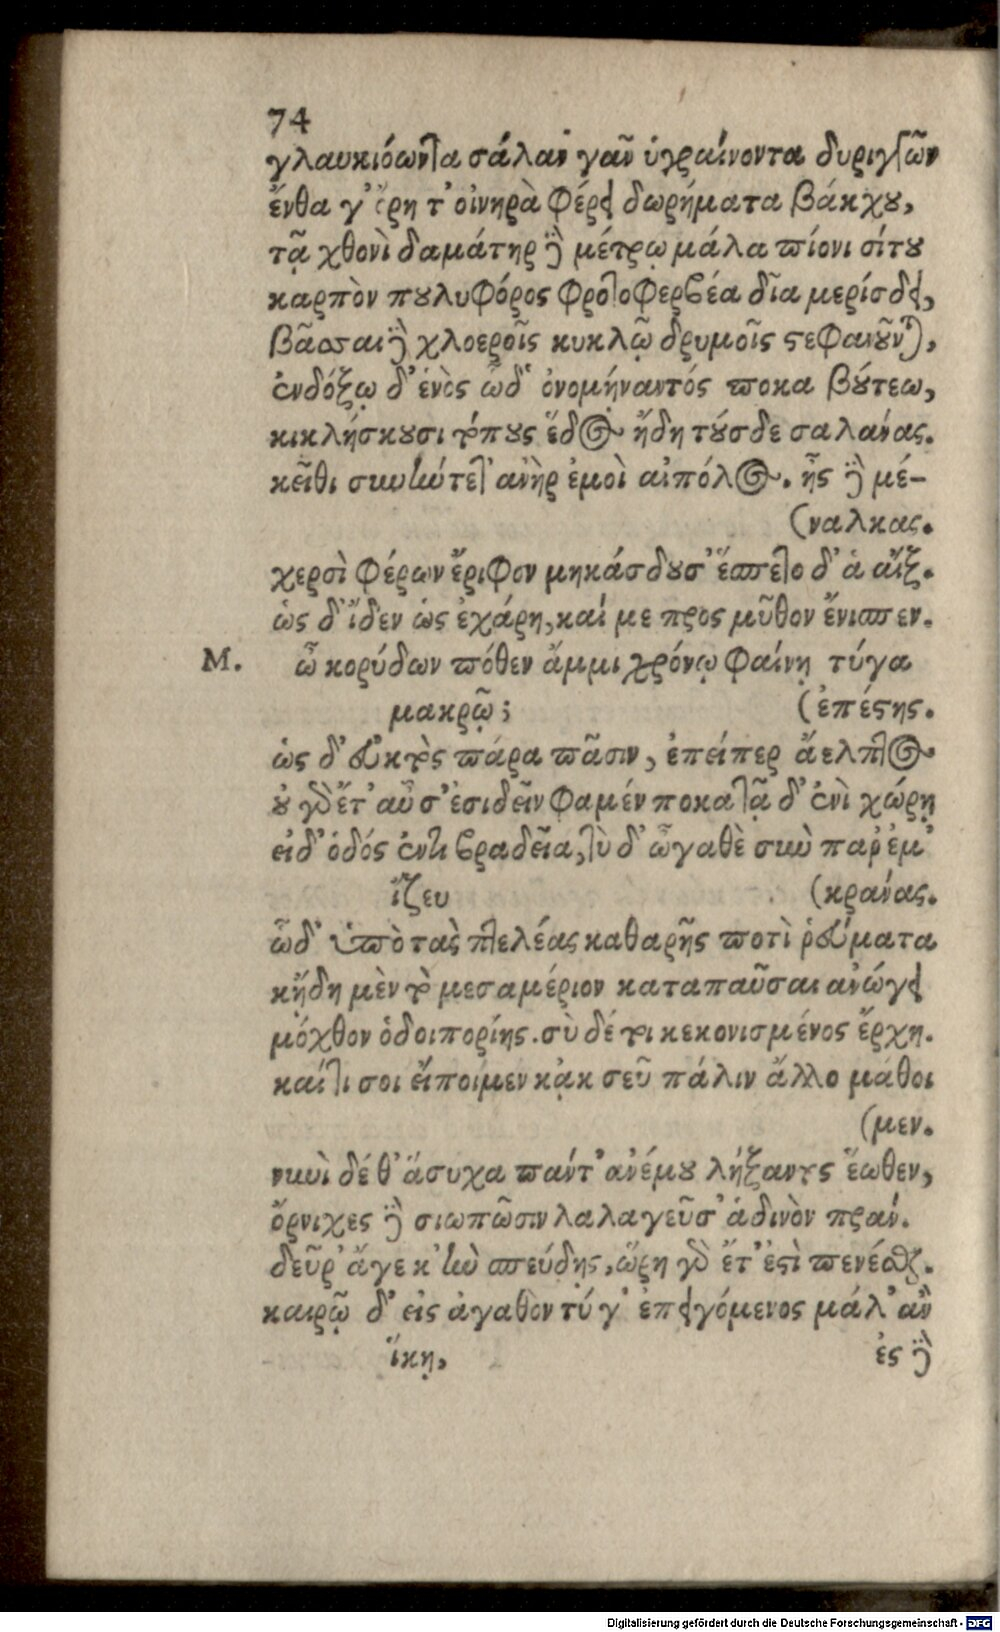 74
γλαυκιόωντα σάλαν γᾶν ὑγραίνοντα
ἔνθα γ' ὄρη τ' οἰνηρὰ φέρει δωρήματα βάκχου,
τᾷ χθονὶ δαμάτηρ καὶ μέτρῳ μάλα πίονι σίτου
καρπὸν πουλυφόρος δῖα μερίσδει,
βᾶσσαι καὶ χλοεροῖς κυκλῷ δρυμοῖς στεφανοῦνται,
ἐνδόξῳ δ' ἑνὸς ὧδ' ὀνομήναντός ποκα βούτεω,
κικλήσκουσι τόπους ἕδος ἤδη τούσδε σαλάνας.
κεῖθι συνήντετ' ἀνὴρ ἐμοὶ αἰπόλος. ἦς καὶ μέ-
(ναλκας.
χερσὶ φέρων ἔριφον μηκάσδουσ' ἕσπετο δ' ἁ αἴξ.
ὡς δ' ἴδεν ὡς ἐχάρη, καί με προς μῦθον ἔνισπεν.
Μ. ὦ κορύδων πόθεν ἄμμι χρόνῳ φαίνῃ τύγα
μακρῷ; (ἐπέστης.
ὡς δ' εὐκτὸς πάρα πᾶσιν, ἐπείπερ ἄελπτος
οὐ γὰρ ἔτ' αὖ σ' ἐσιδεῖν φαμέν ποκα τᾷ δ' ἐνὶ χώρῃ
εἰ δ' ὁδός ἐντι βραδεῖα, τὺ δ' ὦγαθὲ σὺν παρ' ἐμ'
ἵζευ (κράνας.
ὧδ' ὑπὸ τὰς πτελέας καθαρῆς ποτὶ ῥεύματα
κἤδη μὲν τὸ μεσαμέριον καταπαῦσαι ἀνώγει
μόχθον ὁδοιπορίης. σὺ δέ τι κεκονισμένος ἔρχη.
καί τι σοι εἴποιμεν κᾀκ σεῦ πάλιν ἄλλο μάθοι
(μεν.
νυνὶ δέ θ' ἅσυχα πάντ' ἀνέμου λήξαντος ἕωθεν,
ὄρνιχες καὶ σιωπῶσιν λαλαγεῦσ' ἁδινὸν πράν.
δεῦρ' ἄγε κ' ἢν σπεύδῃς, ὥρη γὰρ ἔτ' ἐστὶ πενέσθαι.
καιρῷ δ' εἰς ἀγαθὸν τύ γ' ἐπειγόμενος μάλ' ἂν
ἵκῃ, ἐς καὶ
Digitalisierung gefördert durch die Deutsche Forschungsgemeinschaft - DFG